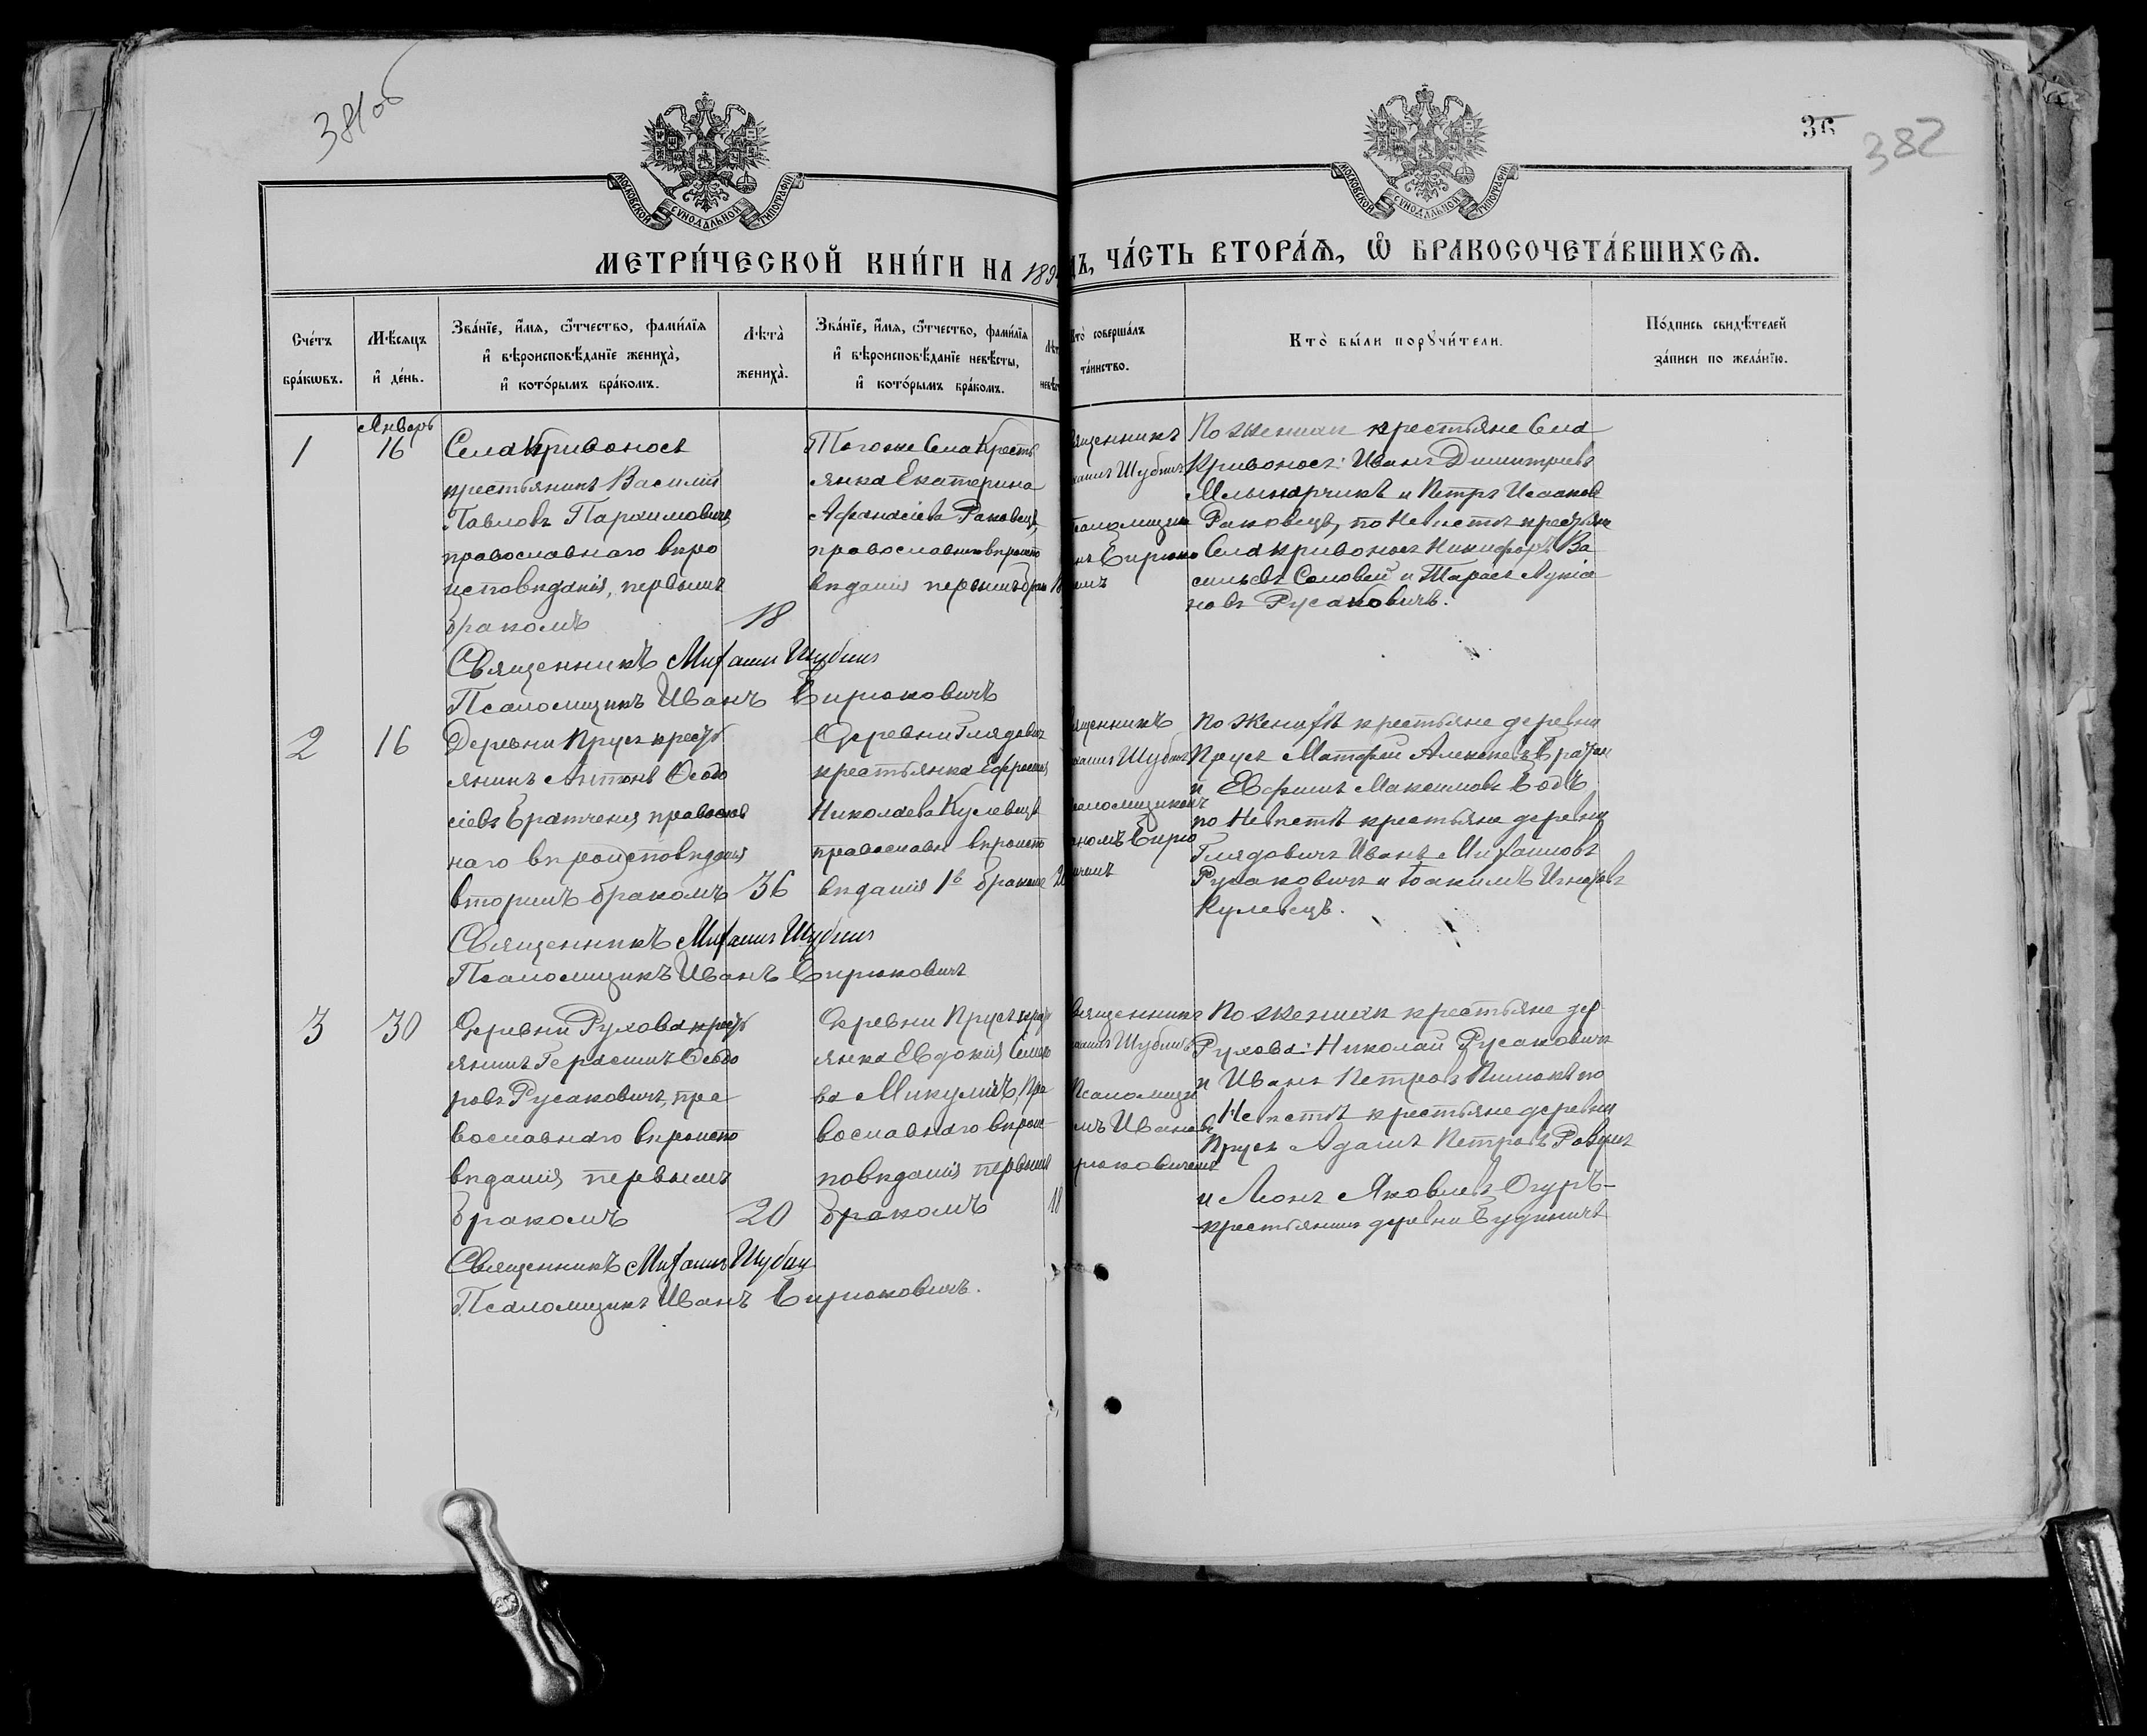 381об
36
382
МОСКОВСКОЙ СУНОДАЛЬНОЙ ТИПОГРАФІИ
МОСКОВСКОЙ СУНОДАЛЬНОЙ ТИПОГРАФІИ
МЕТРИ́ЧЕСКОЙ КНИ́ГИ НА 189
Ъ, ЧА́СТЬ ВТОРА́Я, Ѿ БРАКОСОЧЕТА́ВШИХСЯ.
Сче́тъ
бра́кѡвъ.
Мѣ́сяцъ
и҆ де́нь.
Зва́нїе, и҆́мя, ѻ҆́тчество, фами́лїя
и҆ вѣроисповѣ́данїе жениха̀,
и҆ кото́рымъ бра́комъ.
Лѣта̀
жениха̀.
Зва́нїе, и҆́мя, ѻ҆́тчество, фами́лїя
и҆ вѣроисповѣ́данїе невѣ́сты,
и҆ кото́рымъ бра́комъ.
Кто̀ соверша́лъ
та́инство.
Кто̀ бы́ли порꙋчи́тели.
По́дпись свидѣ́телей
за́писи по жела́нїю.
Январь
1
16
Села Кривоносъ
крестьянинъ Василій
Павловъ Пархимовичъ
православнаго вѣро
исповѣданія, первымъ
бракомъ
18
Тогоже Села Кресть
янка Екатерина
Афанасіева Раковецъ,
православнаго вѣроиспо
вѣданія первымъ бра
18
ященникъ
хаилъ Шубинъ
саломщик
нъ Бирюко
По женихѣ крестьяне Села
Кривоносъ: Иванъ Димитріевъ
Млынарчикъ и Петръ Исааковъ
Раковецъ, по Невѣстѣ крестьяне
Села Кривоносъ Никифоръ Ва
сильевъ Соловей и Тарасъ Лукіа
новъ Русаковичъ.
Священникъ Михаилъ Шубинъ
Псаломщикъ Иванъ Бирюковичъ
2
16
Деревни Прусъ крест
янинъ Антонъ Ѳеодо
сіевъ Братченя православ
наго вѣроисповѣданія
вторымъ бракомъ
36
Деревни Глядовичъ
крестьянка
Николаева Кулевецъ
православн вѣроиспо
вѣданія 1ъ бракомъ
ященникъ
хаилъ Шубинъ
аломщикомъ
номъ Бирю
По женихѣ крестьяне деревни
Прусъ Матфей Алексѣевъ
и Евфимъ Максимовъ Бодъ
по Невѣстѣ крестьяне деревни
Глядовичъ Иванъ Михаиловъ
Русаковичъ и Іоакимъ
Кулевецъ.
Священникъ Михаилъ Шубинъ
Псаломщикъ Иванъ Бирюковичъ
3
30
Деревни Рухова крест
янинъ Герасимъ Ѳеодо
ровъ Русаковичъ, пра
вославнаго вѣроиспо
вѣданія первымъ
бракомъ
20
Деревни Прусъ крест
янка Евдокія
ва Микуличъ, Пра
вославнаго вѣроис
повѣданія первымъ
бракомъ
18
вященникъ
хаилъ Шубинъ
Псаломщик
мъ Иваномъ
рюковичемъ
По женихѣ крестьяне дер
Рухова: Николай Русаковичъ
и Иванъ Петровъ по
Невѣстѣ крестьяне деревни
Прусъ Адамъ Петровъ
и Леонъ Яковлевъ Огуръ-
крестьянинъ деревни
Священникъ Михаилъ Шубин
Псаломщикъ Иванъ Бирюковичъ.